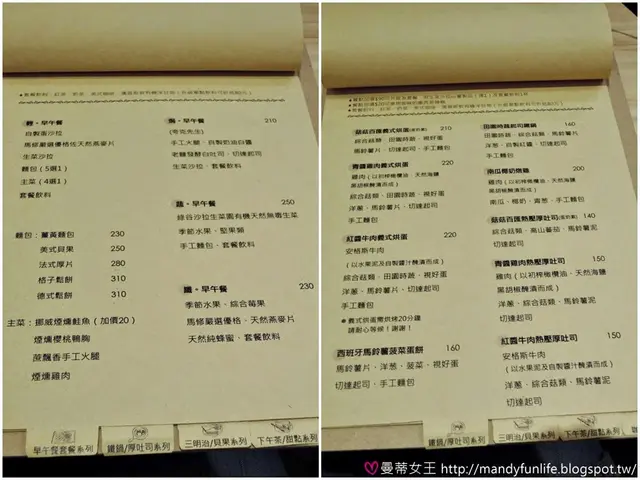 輕。早午餐
自製蛋沙拉
馬修嚴選優格佐天然燕麥片
生菜沙拉
麵包(5選1)
主菜(4選1)
套餐飲料
麵包:薑黃麵包 230
美式貝果 250
法式厚片 280
格子鬆餅 310
德式鬆餅 310
主菜:挪威煙燻鮭魚(加價20)
煙燻櫻桃鴨胸
蔗飄香手工火腿
煙燻雞肉
210
(夸克先生)
手工火腿、自製奶油白醬
老麵發酵白吐司、切達起司
生菜沙拉、套餐飲料
蔬。早午餐 250
綠谷沙拉生菜園有機天然無毒生菜
季節水果、堅果類
手工麵包、套餐飲料
孅。早午餐 230
季節水果、綜合莓果
馬修嚴選優格、天然燕麥片
天然純蜂蜜、套餐飲料
早午餐套餐系列
鐵鍋/厚吐司系列
三明治/貝果系列
下午茶/甜點系列
菇菇百匯義式烘蛋(蛋奶素) 210
綜合菇類、田園時蔬、視好蛋
馬鈴薯片、切達起司、手工麵包
青醬雞肉義式烘蛋 220
雞肉(以初榨橄欖油、天然海鹽
黑胡椒醃漬而成)
綜合菇類、田園時蔬、視好蛋
洋蔥、馬鈴薯片、切達起司
手工麵包
紅醬牛肉義式烘蛋 220
安格斯牛肉
(以水果泥及自製醬汁醃漬而成)
綜合菇類、田園時蔬、視好蛋
洋蔥、馬鈴薯片、切達起司
手工麵包
※義式烘蛋需烘烤20分鐘
請耐心等候!謝謝!
西班牙馬鈴薯菠菜蛋餅 160
馬鈴薯片、洋蔥、菠菜、視好蛋
切達起司、手工麵包
田園時蔬起司燉鍋 140
田園時蔬、綜合菇類、馬鈴薯片
洋蔥、自製紅醬、切達起司
手工麵包
南瓜椰奶燉雞
雞肉(以初榨橄欖油、天然海鹽
黑胡椒醃漬而成)
南瓜、椰奶、青蔥、手工麵包
菇菇百匯熱壓厚吐司(蛋奶素) 140
綜合菇類、高山番茄、馬鈴薯泥
切達起司
青醬雞肉熱壓厚吐司 150
雞肉(以初榨橄欖油、天然海鹽
黑胡椒醃漬而成)
洋蔥、綜合菇類、馬鈴薯泥
切達起司
紅醬牛肉熱壓厚吐司 150
安格斯牛肉
(以水果泥及自製醬汁醃漬而成)
洋蔥、綜合菇類、馬鈴薯泥
切達起司
鐵鍋/厚吐司系列
三明治/貝果系列
下午茶/甜點系列
曼蒂女王 http://mandyfunlife.blogspot.tw/